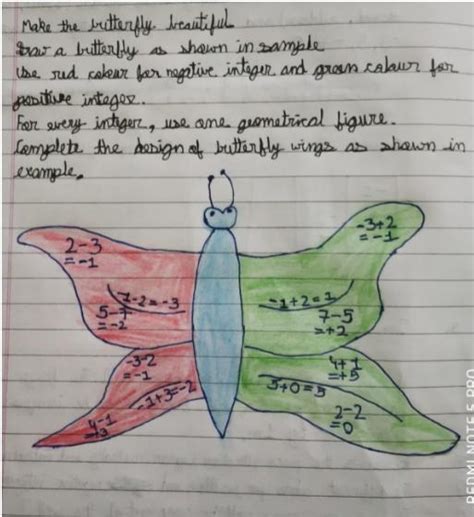 Make the butterfly beautiful
Draw a butterfly as shown in sample
Use red colour for negative integer and green colour for
positive integer.
For every intiger, use one geometrical figure.
Complete the design of butterfly wings as shown in
example.
2-3
=-1
7-2=-3
5-7
=-2
-3-2
=-1
-1+3=-2
4-1
-3+2
=-1
-1+2=1
7-5
=+2
4+1
=+5
5+0=5
2-2
=0
REDMI NOTE 5 PRO